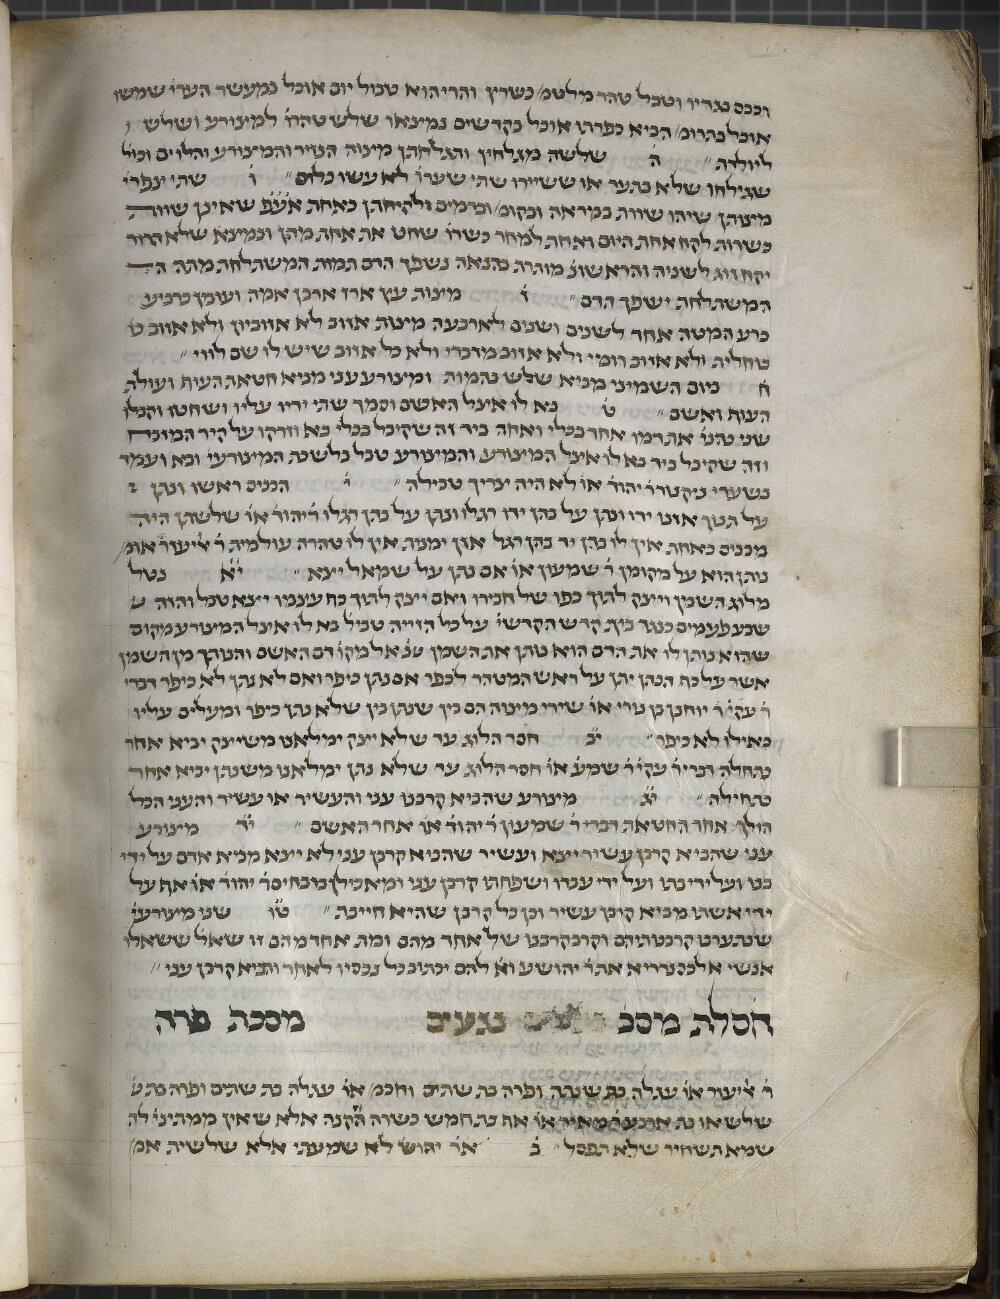 וכבס בגדיו וטבל טהר מלטמ׳ כשרץ והרי הוא טבול יום אוכל במעשר הערי׳ שמשו
אוכל בתרומ׳ הביא כפרתו אוכל בקדשים נמצאו שלש טהרו׳ למצורע ושלש
ליולדת ״ ה׳ שלשה מגלחין ותגלחתן מצוה הנזיר והמצורע והלוים וכול׳
שגילחו שלא בתער או ששיירו שתי שערו׳ לא עשו כלום ״ ו׳ שתי ציפרי׳
מצותן שיהו שוות במראה ובקומ׳ ובדמים ולקיחתן כאחת אע׳פ שאינן שוות
כשרות לקח אחת היום ואחת למחר כשרו׳ שחט את אחת מהן ונמצא שלא דרור
יקח זוג לשניה והראשונ׳ מותרת בהנאה נשפך הדם תמות המשתלחת מתה ה
המשתלחת ישפך הדם ״ ז׳ מצות עץ ארז ארכן אמה ועומן כרביע
כרע המטה אחד לשנים ושנים לארבעה מצות אזוב לא אזוביון ולא אזוב כ
כוחלית ולא אזוב רומי ולא אזוב מדברי ולא כל אזוב שיש לו שם לווי ״
ח׳ ביום השמיני מביא שלש בהמות ומצורע עני מביא חטאת העוף ועולת
העוף ואשם ״ ט׳ בא לו אצל האשם וסמך שתי ידיו עליו ושחטו וקבלו
שני כהני׳ את דמו אחד בכלי ואחד ביד זה שקיבל בכלי בא וזרקו על קיר המזבח
וזה שקיבל ביד בא לו אצל המצורע והמצורע טבל בלשכת המצורעי׳ ובא ועמד
בשערי ניקנור ר׳ יהוד׳ או׳ לא היה צריך טבילה ״ י׳ הכניס ראשו ונתן
על תנוך אזנו ידו ונתן על בהן ידו רגלו ונתן על בהן רגלו ר׳ יהוד׳ או׳ שלשתן היה
מכניס כאחת אין לו בהן יד בהן רגל אזן ימנית אין לו טהרה עולמית ר׳ ליעזר אומ׳
נותן הוא על מקומן ר׳ שמעון או׳ אם נתן על שמאל יצא ״ י׳א׳ נטל
מלוג השמן ויצק לתוך כפו של חבירו ואם יצק לתוך כף עצמו יצא טבל והזה ש
שבע פעמים כנגד בית קדש הקדשי׳ על כל הזייה טביל׳ בא לו אצל המצורע מקום
שהוא נותן לו את הדם הוא נותן את השמן שנ׳ אל מקו׳ דם האשם והנותר מן השמן
אשר על כף הכהן יתן על ראש המטהר לכפר אם נתן כיפר ואם לא נתן לא כיפר דברי
ר׳ עקי׳ ר׳ יוחנן בן נורי או׳ שירי מצוה הם בין שנתן בין שלא נתן כיפר ומעלים עליו
כאילו לא כיפר ״ י׳ב׳ חסר הלוג עד שלא יצק ימלאנו משיצק יביא אחר
בתחלה דברי ר׳ עקי׳ ר׳ שמע׳ או׳ חסר הלוג עד שלא נתן ימלאנו משנתן יביא אחר
בתחילה ״ י׳ג׳ מצורע שהביא קרבנו עני והעשיר או עשיר והעני הכל
הולך אחר החטאת דברי ר׳ שמעון ר׳ יהוד׳ או׳ אחר האשם ״ י׳ד׳ מצורע
עני שהביא קרבן עשיר יצא ועשיר שהביא קרבן עני לא יצא מביא אדם על ידי
בנו ועל יד בתו ועל ידי עבדו ושפחתו קרבן עני ומאכילן בזבחים ר׳ יהוד׳ או׳ אף על
ידי אשתו מביא קרבן עשיר וכן כל קרבן שהיא חייבת ״ ט׳ו׳ שני מצורעי׳
שנתערבו קרבנותיהם וקרב קרבנו של אחד מהם ומת אחד מהם זו שאל ששאלו
אנשי אלכסנדריא את ר׳ יהושע וא׳ להם יכתוב כל נכסיו לאחר ויביא קרבן עני ״
חסלת מסכ נגעים מסכת פרה
ר׳ ליעזר או׳ עגלה בת שנתה ופרה בת שתים וחכמ׳ או׳ עגלה בת שתים ופרה בת ש׳
שלש או בת ארבע ר׳ מאיר או׳ אף בת חמש כשרה הזקנה אלא שאין ממתינ׳ לה
שמא תשחיר שלא תפסל ״ ב׳ א׳ר׳ יהוש׳ לא שמעתי אלא שלשית אמ׳